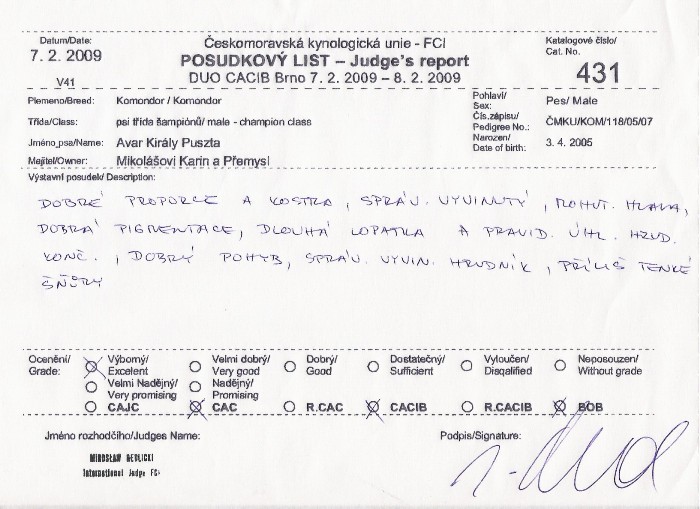 Datum/Date:
7. 2. 2009
V41
Českomoravská kynologická unie - FCI
POSUDKOVÝ LIST – Judge's report
DUO CACIB Brno 7. 2. 2009 – 8. 2. 2009
Katalogové číslo/
Cat. No.
431
Plemeno/Breed: Komondor / Komondor
Pohlaví/
Sex: Pes/ Male
Třída/Class: psi třída šampiónů/ male - champion class
Čís.zápisu/
Pedigree No.: ČMKU/KOM/118/05/07
Jméno psa/Name: Avar Király Puszta
Narození/
Date of birth: 3. 4. 2005
Majitel/Owner: Mikolášovi Karin a Přemysl
Výstavní posudek/ Description:
DOBRÉ PROPORCE A KOSTRA, SPRÁV. VYVINUTÝ, MOHUT. HLAVA,
DOBRÁ PIGMENTACE, DLOUHÁ LOPATKA A PRAVID. ÚHL. HRUD.
KONČ., DOBRÝ POHYB, SPRÁV. VYVIN. HRUDNÍK, PŘÍLIŠ TENKÉ
ŠŇŮRY
Ocenění/
Grade:
Výborný/
Excelent
Velmi dobrý/
Very good
Dobrý/
Good
Dostatečný/
Sufficient
Vyloučen/
Disqalified
Neposouzen/
Without grade
Velmi Nadějný/
Very promising
Nadějný/
Promising
CAJC CAC R.CAC CACIB R.CACIB BOB
Jméno rozhodčího/Judges Name:
Podpis/Signature:
MIROSŁAW REDLICKI
International Judge FCI